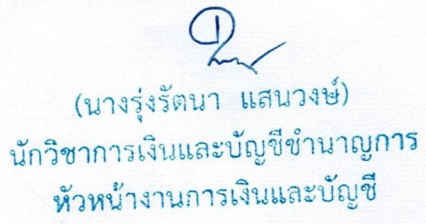 (นางรุ่งรัตนา แสนวงษ์)
นักวิชาการเงินและบัญชีชำนาญการ
หัวหน้างานการเงินและบัญชี